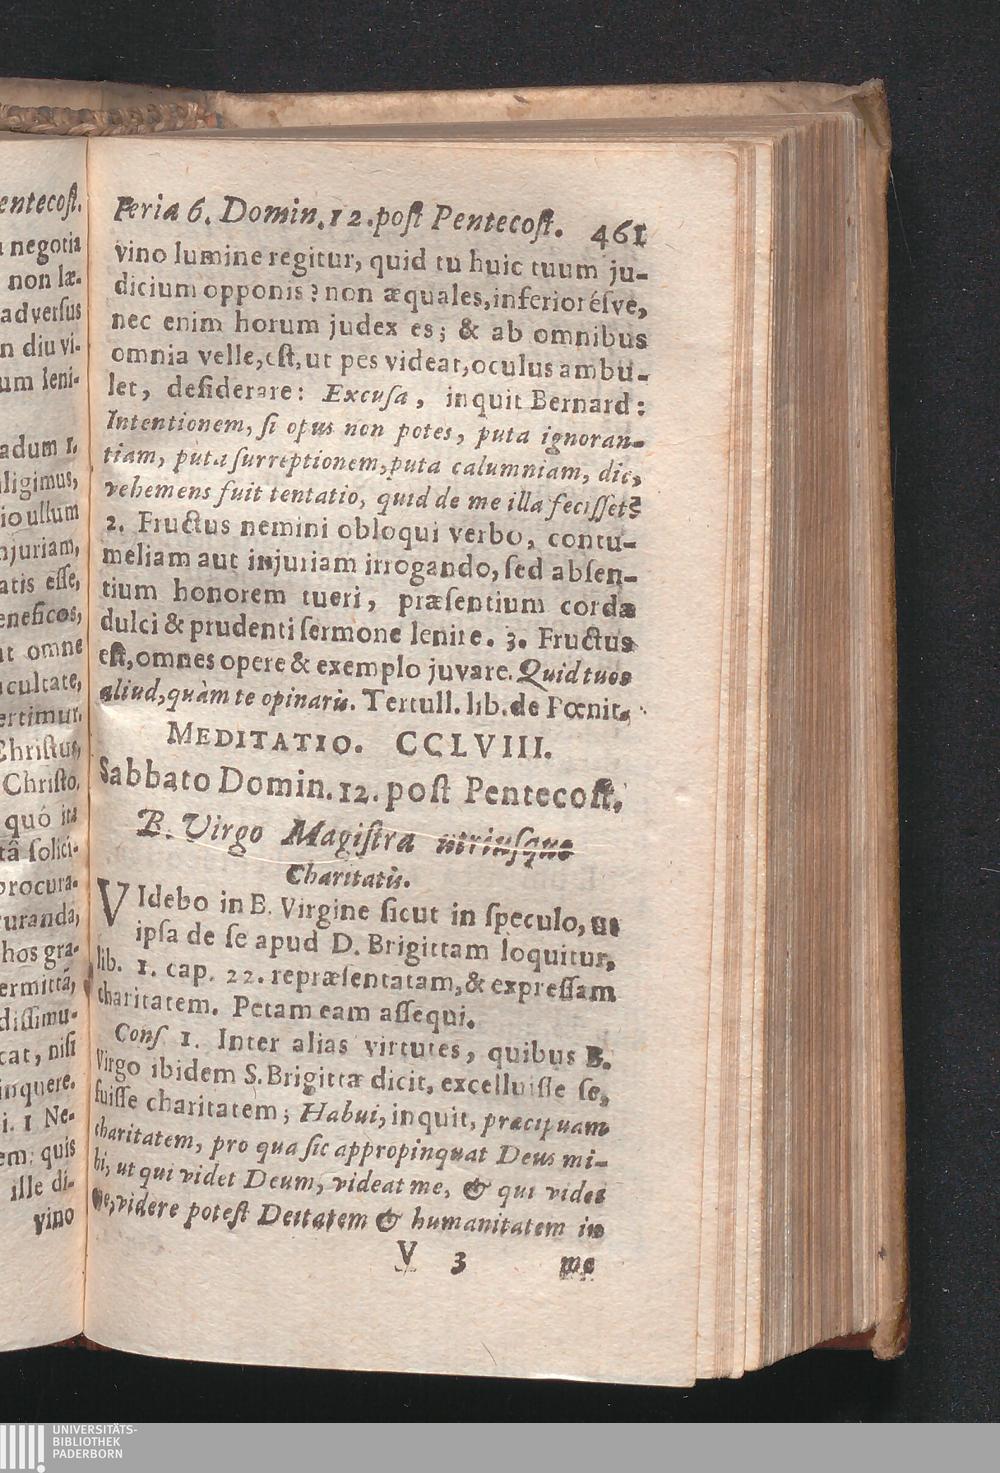 entecoſt.
negotia
non læ-
adverſus
n diu vi-
um leni-
adum 1.
iligimus,
io ullum
njuriam,
atis eſſe,
eneficos,
ut omne
acultate,
ertimur.
Chriſtus,
Chriſto,
quó ita
tâ ſolici-
procura-
curanda,
hos gra-
ermittã,
diſſimu-
cat, niſi
inquere.
i. 1 Ne-
em, quis
ille di-
vino
Feria 6. Domin. 12. poſt Pentecoſt. 461
vino lumine regitur, quid tu huic tuum ju-
dicium opponis? non æquales, inferioréſve,
nec enim horum judex es; & ab omnibus
omnia velle, eſt, ut pes videat, oculus ambu-
let, deſiderare: Excuſa, inquit Bernard:
Intentionem, ſi opus non potes, puta ignoran-
tiam, puta ſurreptionem, puta calumniam, dic,
vehemens fuit tentatio, quid de me illa feciſſet?
2. Fructus nemini obloqui verbo, contu-
meliam aut injuriam irrogando, ſed abſen-
tium honorem tueri, præſentium corda
dulci & prudenti ſermone lenire. 3. Fructus
eſt, omnes opere & exemplo juvare. Quid tues
aliud, quàm te opinaris. Tertull. lib. de Pœnit.
MEDITATIO. CCLVIII.
Sabbato Domin. 12. poſt Pentecoſt.
B. Virgo Magiſtra utriuſque
Charitatis.
VIdebo in B. Virgine ſicut in ſpeculo, ut
ipſa de ſe apud D. Brigittam loquitur,
lib. 1. cap. 22. repræſentatam, & expreſſam
charitatem. Petam eam aſſequi.
Conſ 1. Inter alias virtutes, quibus B.
Virgo ibidem S. Brigittæ dicit, excelluiſſe ſe,
fuiſſe charitatem; Habui, inquit, præcipuam
charitatem, pro qua ſic appropinquat Deus mi-
hi, ut qui videt Deum, videat me, & qui videt
me, videre poteſt Deitatem & humanitatem in
V 3 me
UNIVERSITÄTS-
BIBLIOTHEK
PADERBORN